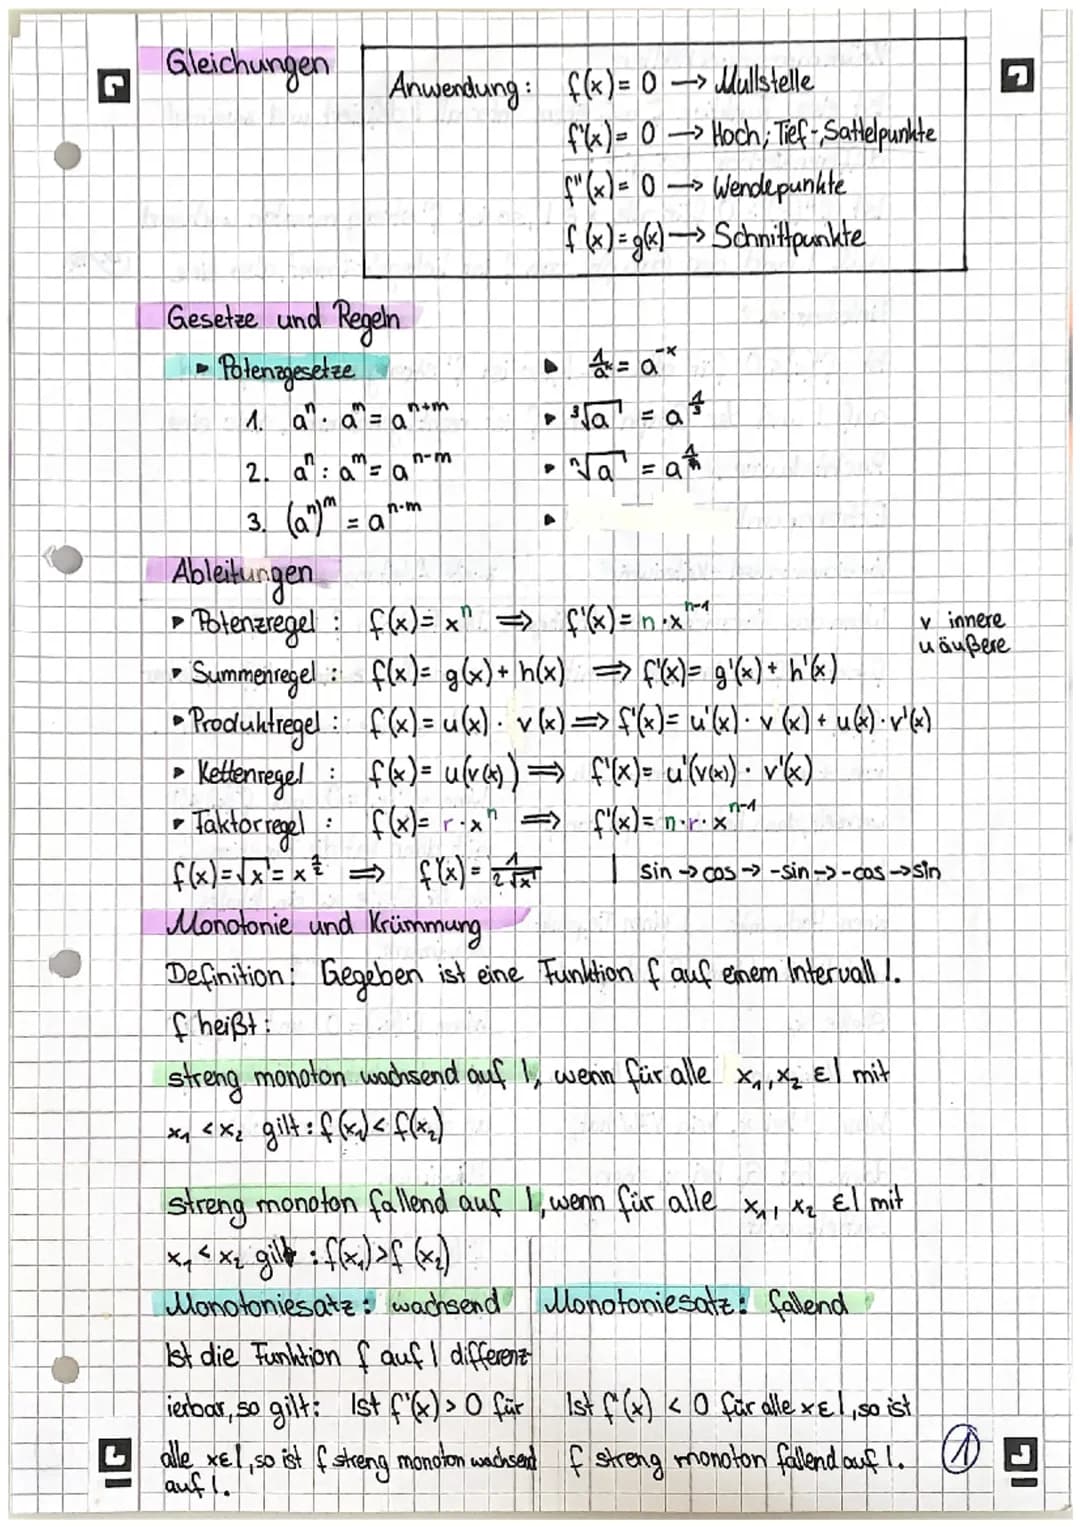 Gleichungen
Anwendung: f(x) = 0 → Nullstelle
f'(x) = 0 → Hoch; Tief-, Sattelpunkte
f''(x) = 0 → Wendepunkte
f(x) = g(x) → Schnittpunkte
Gesetze und Regeln
▸ Potenzgesetze
1. aⁿ · aᵐ = aⁿ⁺ᵐ
2. aⁿ : aᵐ = aⁿ⁻ᵐ
3. (aⁿ)ᵐ = aⁿ·ᵐ
▸ 1/aˣ = a⁻ˣ
▸ ³√a = a^(1/3)
▸ ⁿ√a = a^(1/n)
▸
Ableitungen
▸ Potenzregel : f(x) = xⁿ ⟹ f'(x) = n · xⁿ⁻¹
v innere
u äußere
▸ Summenregel : f(x) = g(x) + h(x) ⟹ f'(x) = g'(x) + h'(x)
▸ Produktregel : f(x) = u(x) · v(x) ⟹ f'(x) = u'(x) · v(x) + u(x) · v'(x)
▸ Kettenregel : f(x) = u(v(x)) ⟹ f'(x) = u'(v(x)) · v'(x)
▸ Faktorregel : f(x) = r · xⁿ ⟹ f'(x) = n · r · xⁿ⁻¹
f(x) = √x = x^(1/2) ⟹ f'(x) = 1/(2√x) | sin → cos → -sin → -cos → sin
Monotonie und Krümmung
Definition: Gegeben ist eine Funktion f auf einem Intervall I.
f heißt:
streng monoton wachsend auf I, wenn für alle x₁, x₂ ε I mit
x₁ < x₂ gilt: f(x₁) < f(x₂)
streng monoton fallend auf I, wenn für alle x₁, x₂ ε I mit
x₁ < x₂ gilt : f(x₁) > f(x₂)
Monotoniesatz: wachsend
Ist die Funktion f auf I differenz-
ierbar, so gilt: Ist f'(x) > 0 für
alle x ε I, so ist f streng monoton wachsend
auf I.
Monotoniesatz: fallend
Ist f'(x) < 0 für alle x ε I, so ist
f streng monoton fallend auf I.
1